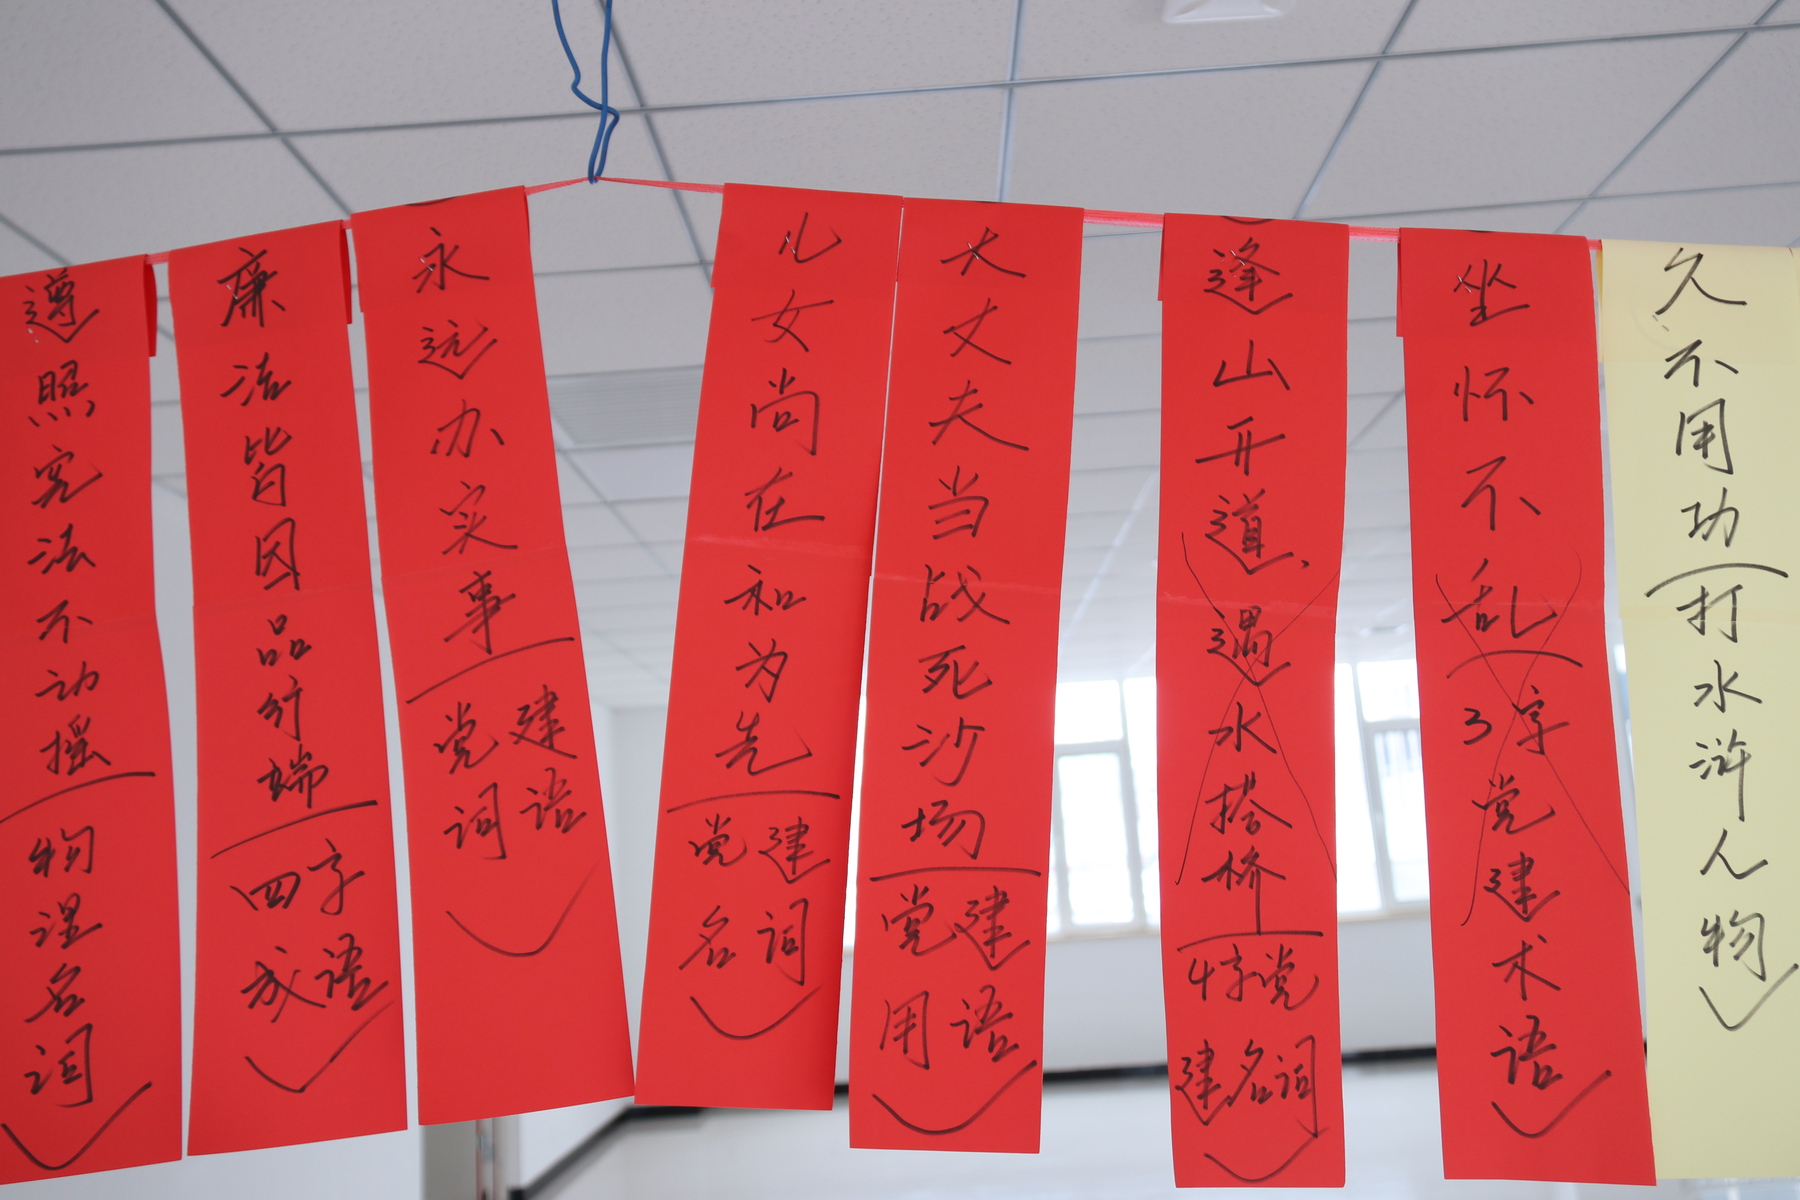 遵照宪法不动摇
物理名词
廉洁皆因品行端
四字
成语
永远办实事
党建
词语
儿女尚在和为先
党建
名词
大丈夫当战死沙场
党建
用语
逢山开道、遇水搭桥
4字党
建名词
坐怀不乱
3字党建术语
久不用功
打水浒人物